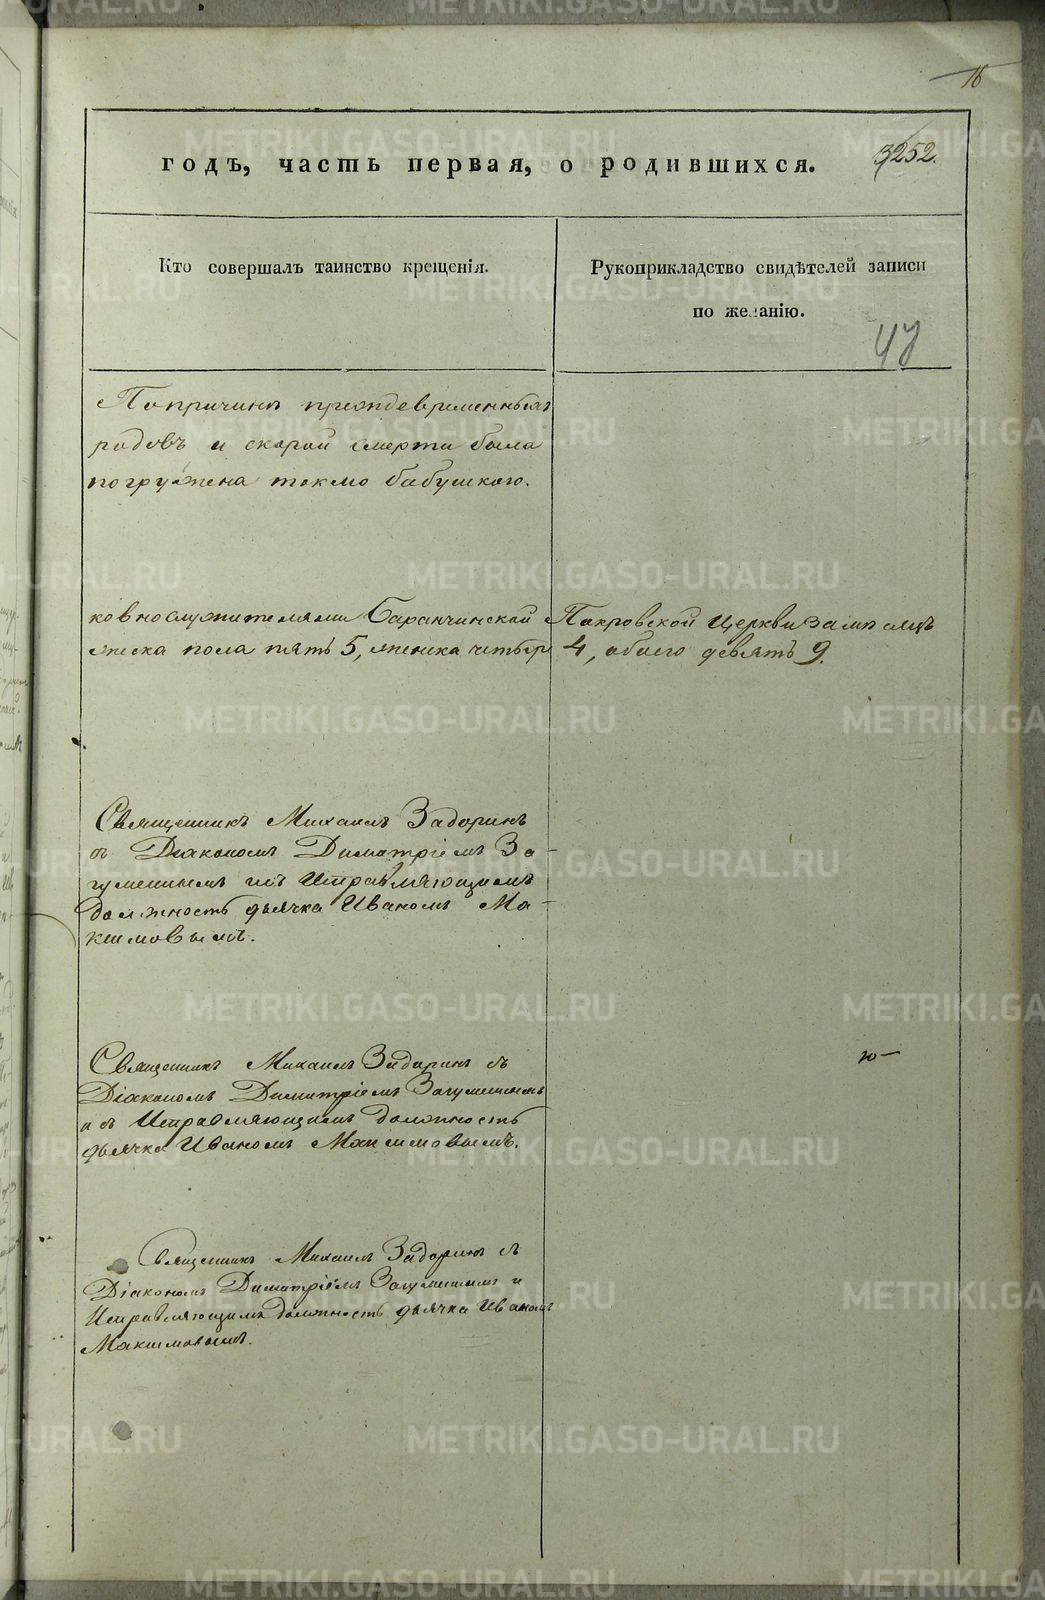 16
годъ, часть первая, о родившихся.
3252.
Кто совершалъ таинство крещенія.
Рукоприкладство свидѣтелей записи
по желанію.
47
По причинѣ преждевременныхъ
родовъ и скорой смерти была
погружена токмо бабушкою.
ковнослужителями Баранчинской Покровской Церкви
мужеска пола пять 5, женска четыре 4, обоего девять 9.
Священникъ Михаилъ Задоринъ
съ Діакономъ Димитріемъ За-
гуменнымъ и съ Исправляющимъ
должность дьячка Иваномъ Ма-
ксимовымъ.
Священникъ Михаилъ Задоринъ съ
Діакономъ Димитріемъ Загуменнымъ
и съ Исправляющимъ должность
дьячка Иваномъ Максимовымъ.
Священникъ Михаилъ Задоринъ съ
Діакономъ Димитріемъ Загуменнымъ и
Исправляющимъ должность дьячка Иваномъ
Максимовымъ.
METRIKI.GASO-URAL.RU